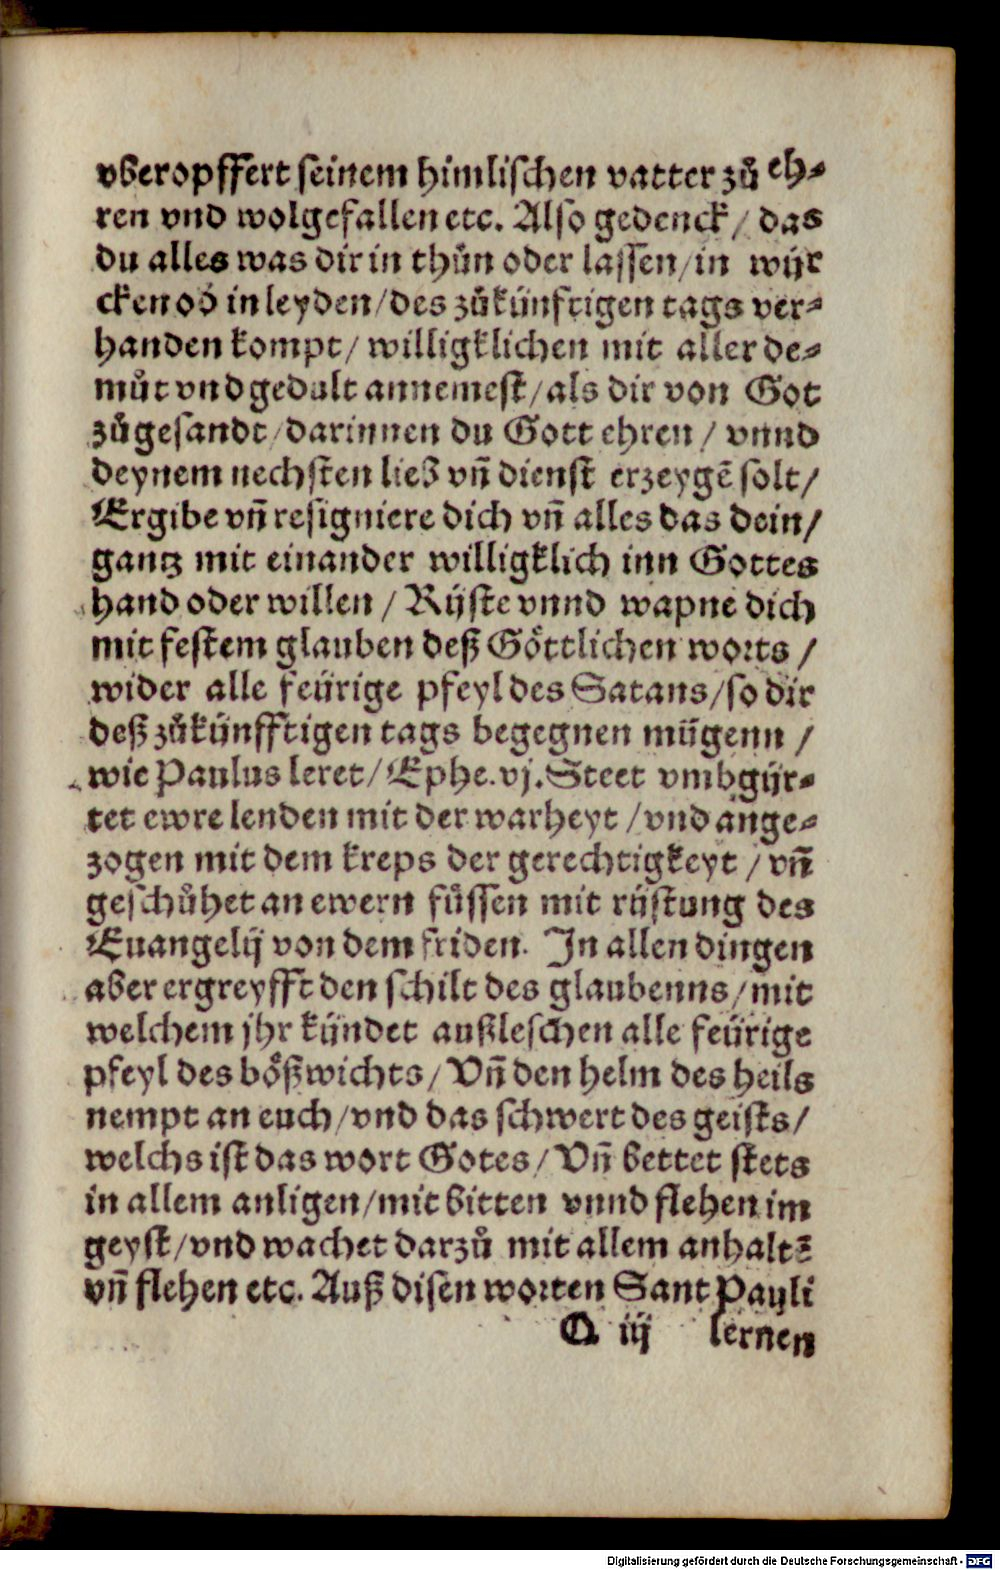 vberopffert seinem himlischen vatter zů eh⸗
ren vnd wolgefallen etc. Also gedenck / das
du alles was dir in thůn oder lassen / in wÿr
cken oď in leyden / des zůkünfftigen tags ver⸗
handen kompt / willigklichen mit aller de⸗
můt vnd gedult annemest / als dir von Got
zůgesandt / darinnen du Gott ehren / vnnd
deynem nechsten lieb vñ dienst erzeygẽ solt /
Ergibe vñ resigniere dich vñ alles das dein /
gantz mit einander willigklich inn Gottes
hand oder willen / Rÿste vnnd wapne dich
mit festem glauben deß Göttlichen worts /
wider alle feürige pfeyl des Satans / so dir
deß zůkünfftigen tags begegnen mügenn /
wie Paulus leret / Ephe. vj. Steet vmbgÿr⸗
tet ewre lenden mit der warheyt / vnd ange⸗
zogen mit dem kreps der gerechtigkeyt / vñ
geschůhet an ewern fůssen mit rüstung des
Euangelij von dem friden. In allen dingen
aber ergreyfft den schilt des glaubenns / mit
welchem jhr kündet außleschen alle feürige
pfeyl des bößwichts / Vñ den helm des heils
nempt an euch / vnd das schwert des geists /
welchs ist das wort Gotes / Vñ bettet stets
in allem anligen / mit bitten vnnd flehen im
geyst / vnd wachet darzů mit allem anhaltẽ
vñ flehen etc. Auß disen worten Sant Pauli
O iij lernen
Digitalisierung gefördert durch die Deutsche Forschungsgemeinschaft - DFG